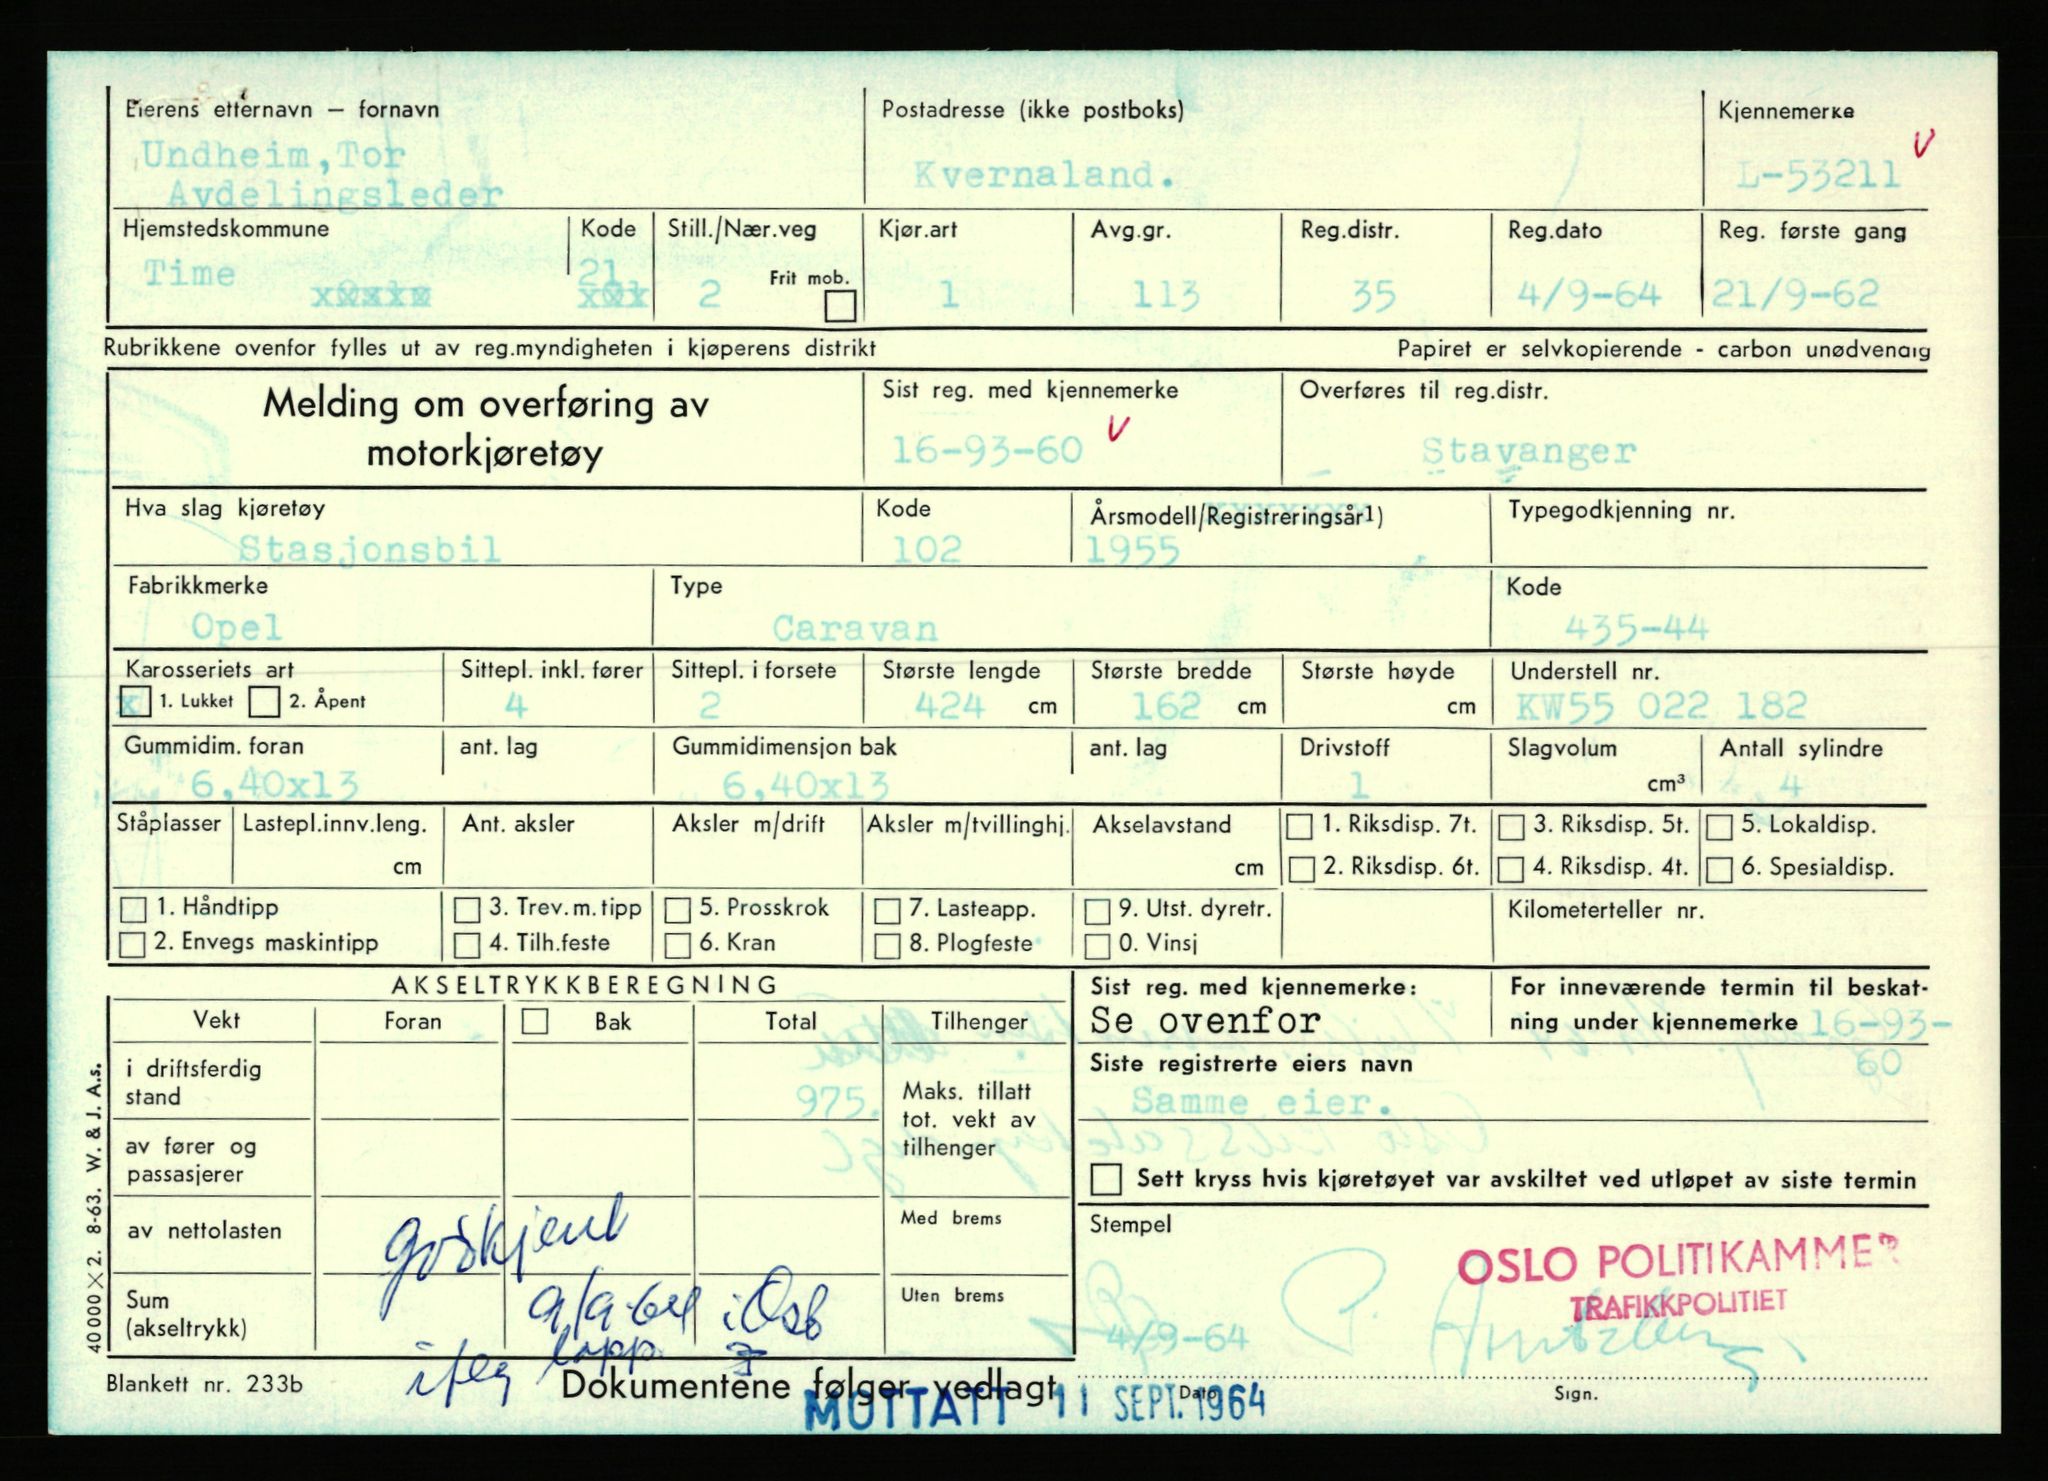 Eierens etternavn – fornavn Postadresse (ikke postboks) Kjennemerke
Undheim,Tor Kvernaland. L-53211 V
Avdelingsleder
Hjemstedskommune Kode Still./Nær.veg Kjør.art Avg.gr. Reg.distr. Reg.dato Reg. første gang
Time 21 2 Frit mob. 1 113 35 4/9-64 21/9-62
Rubrikkene ovenfor fylles ut av reg.myndigheten i kjøperens distrikt Papiret er selvkopierende - carbon unødvendig
Melding om overføring av Sist reg. med kjennemerke Overføres til reg.distr.
motorkjøretøy 16-93-60 V Stavanger
Hva slag kjøretøy Kode Årsmodell/Registreringsår1) Typegodkjenning nr.
Stasjonsbil 102 1955
Fabrikkmerke Type Kode
Opel Caravan 435-44
Karosseriets art Sittepl. inkl. fører Sittepl. i forsete Største lengde Største bredde Største høyde Understell nr.
x 1. Lukket 2. Åpent 4 2 424 cm 162 cm cm KW55 022 182
Gummidim. foran ant. lag Gummidimensjon bak ant. lag Drivstoff Slagvolum Antall sylindre
6,40x13 6,40x13 1 cm³ 4
Ståplasser Lastepl.innv.leng. Ant. aksler Aksler m/drift Aksler m/tvillinghj. Akselavstand 1. Riksdisp. 7t. 3. Riksdisp. 5t. 5. Lokaldisp.
cm cm 2. Riksdisp. 6t. 4. Riksdisp. 4t. 6. Spesialdisp.
1. Håndtipp 3. Trev.m.tipp 5. Prosskrok 7. Lasteapp. 9. Utst. dyretr. Kilometerteller nr.
2. Envegs maskintipp 4. Tilh.feste 6. Kran 8. Plogfeste 0. Vinsj
AKSELTRYKKBEREGNING Sist reg. med kjennemerke: For inneværende termin til beskat-
Vekt Foran Bak Total Tilhenger Se ovenfor ning under kjennemerke 16-93-
60
i driftsferdig Siste registrerte eiers navn
stand 975. Maks. tillatt Samme eier.
tot. vekt av
av fører og tilhenger
passasjerer Sett kryss hvis kjøretøyet var avskiltet ved utløpet av siste termin
av nettolasten Med brems Stempel
godkjent OSLO POLITIKAMMER
Sum Uten brems TRAFIKKPOLITIET
(akseltrykk) 9/9-64 i Oslo 4/9-64
lapp
40 000 X 2. 8-63. W. & J. A.s.
Blankett nr. 233b Dokumentene følger vedlagt Dato Sign.
MOTTATT 11 SEPT. 1964